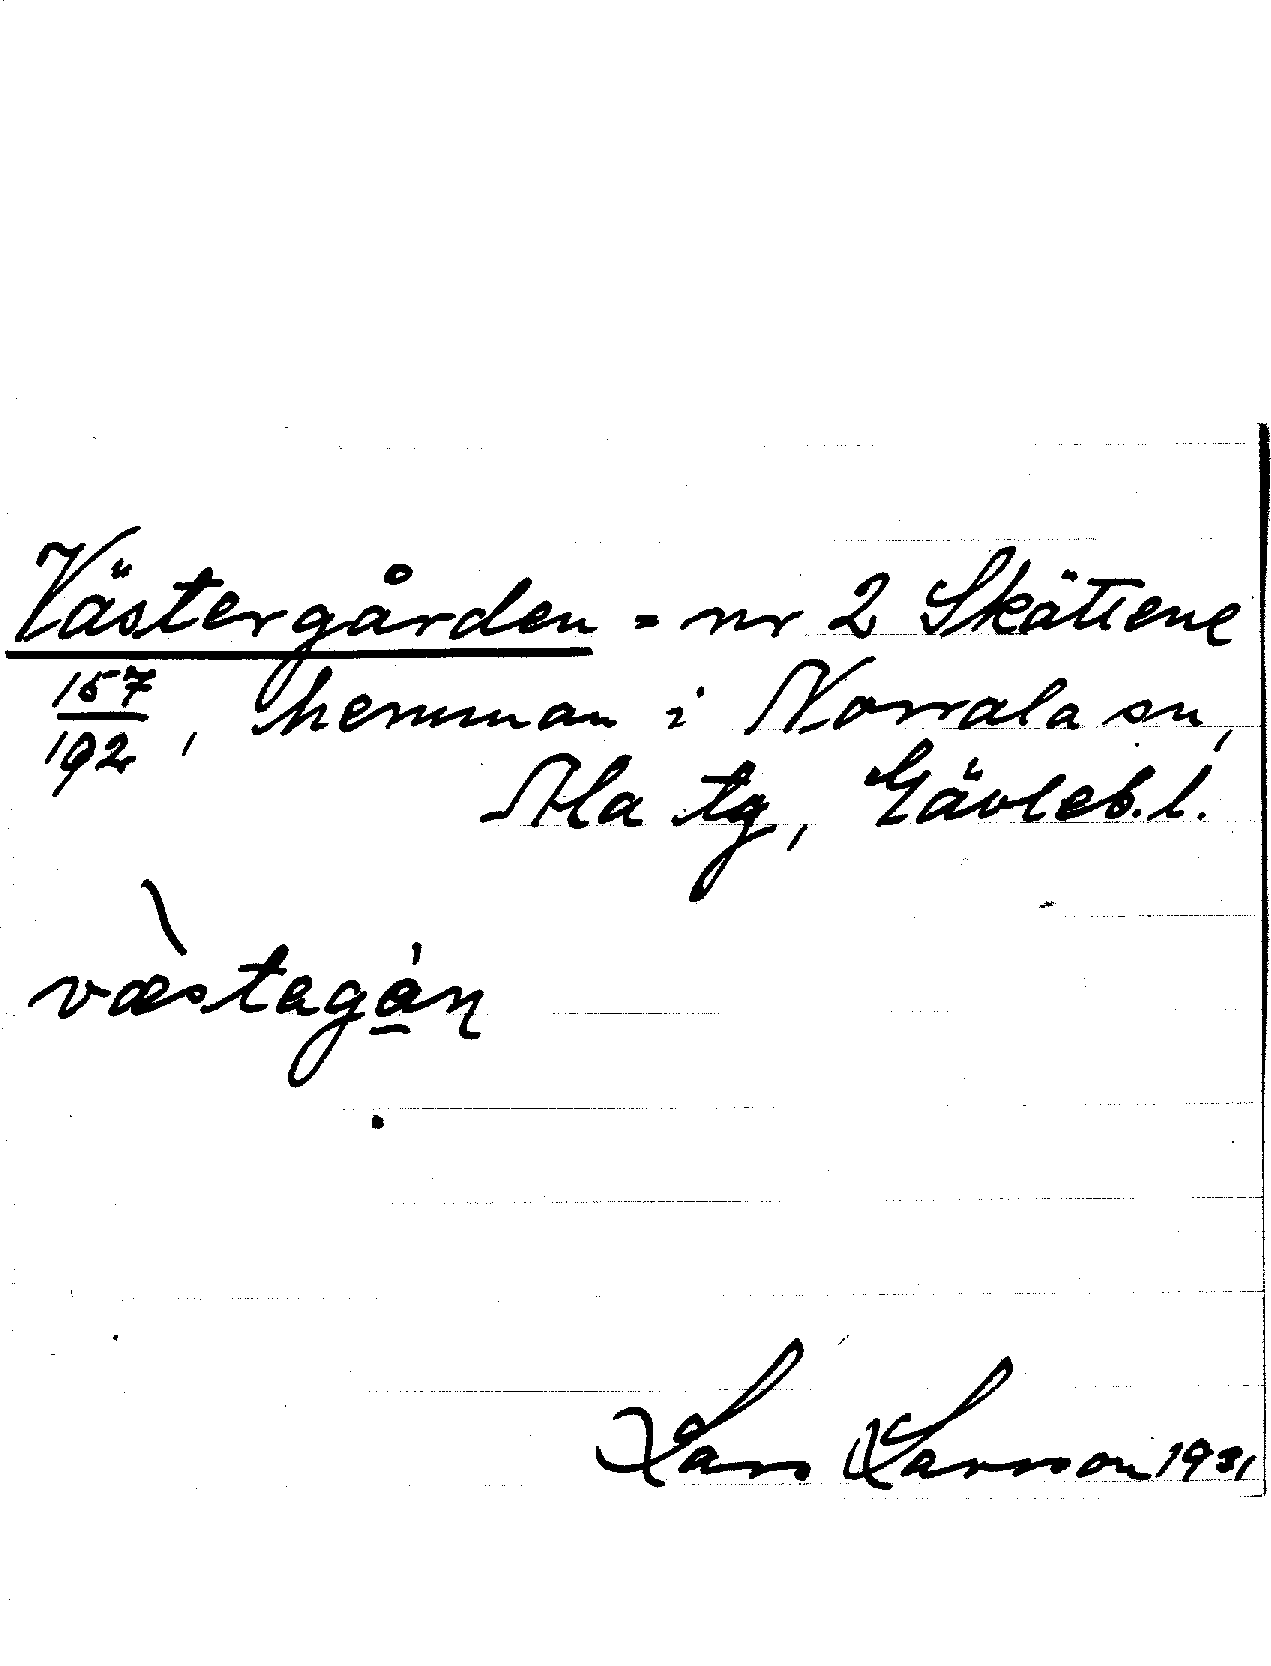 Västergården = nr 2 Skättene
157/192, hemman i Norrala sn,
Ala tg, Gävleb.l.
væ̀stagån
Lars Larsson 1931